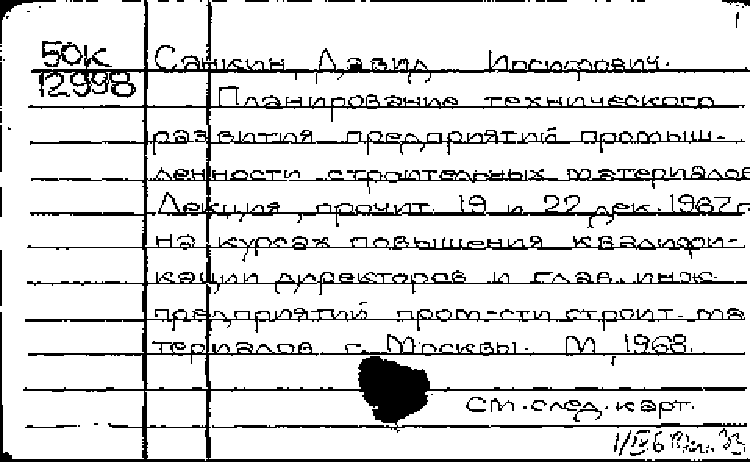 50к
12998
Санкин, Давид Иосифович.
Планирование технического
развития предприятий промыш-
ленности строительных материалов
Лекция, прочит. 19 и 22 дек. 1967 г.
на курсах повышения квалифи-
кации директоров и глав. инж.
предприятий пром-сти строит. ма
териалов г. Москвы. М., 1968.
см. след. карт.